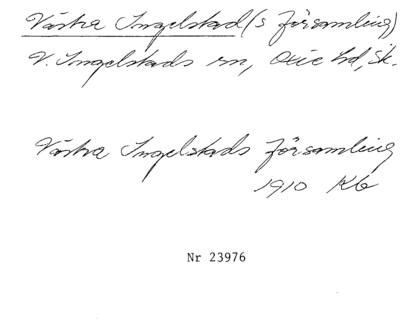 Västra Ingelstad(s församling)
V. Ingelstads sn, Oxie hd, Sk.
Västra Ingelstads församling
1910 Kb
Nr 23976